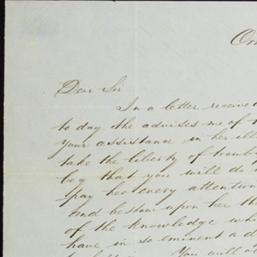 Dear Sir
In a letter received
to day she advises me of
your assistance in her ill
take the liberty of troub
beg that you will do
pay her every attention
and bestow upon her th
of the knowledge wh
have in so eminent a d
You will